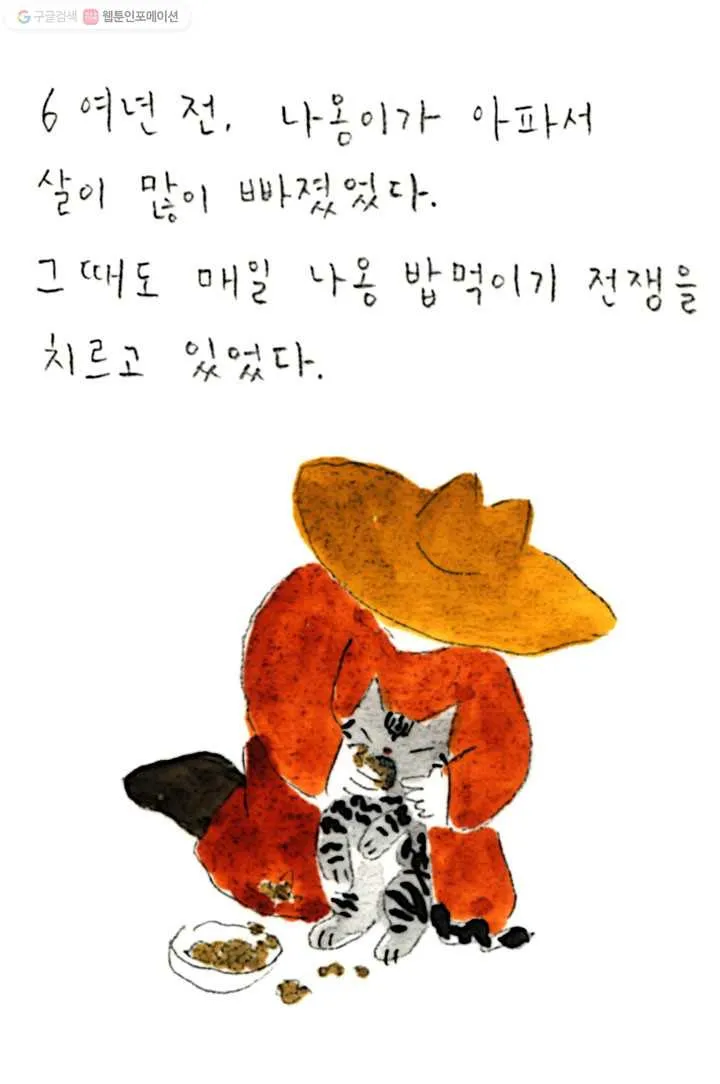 구글검색 웹툰인포메이션
6여년 전, 나옹이가 아파서
살이 많이 빠졌었다.
그때도 매일 나옹 밥먹이기 전쟁을
치르고 있었다.